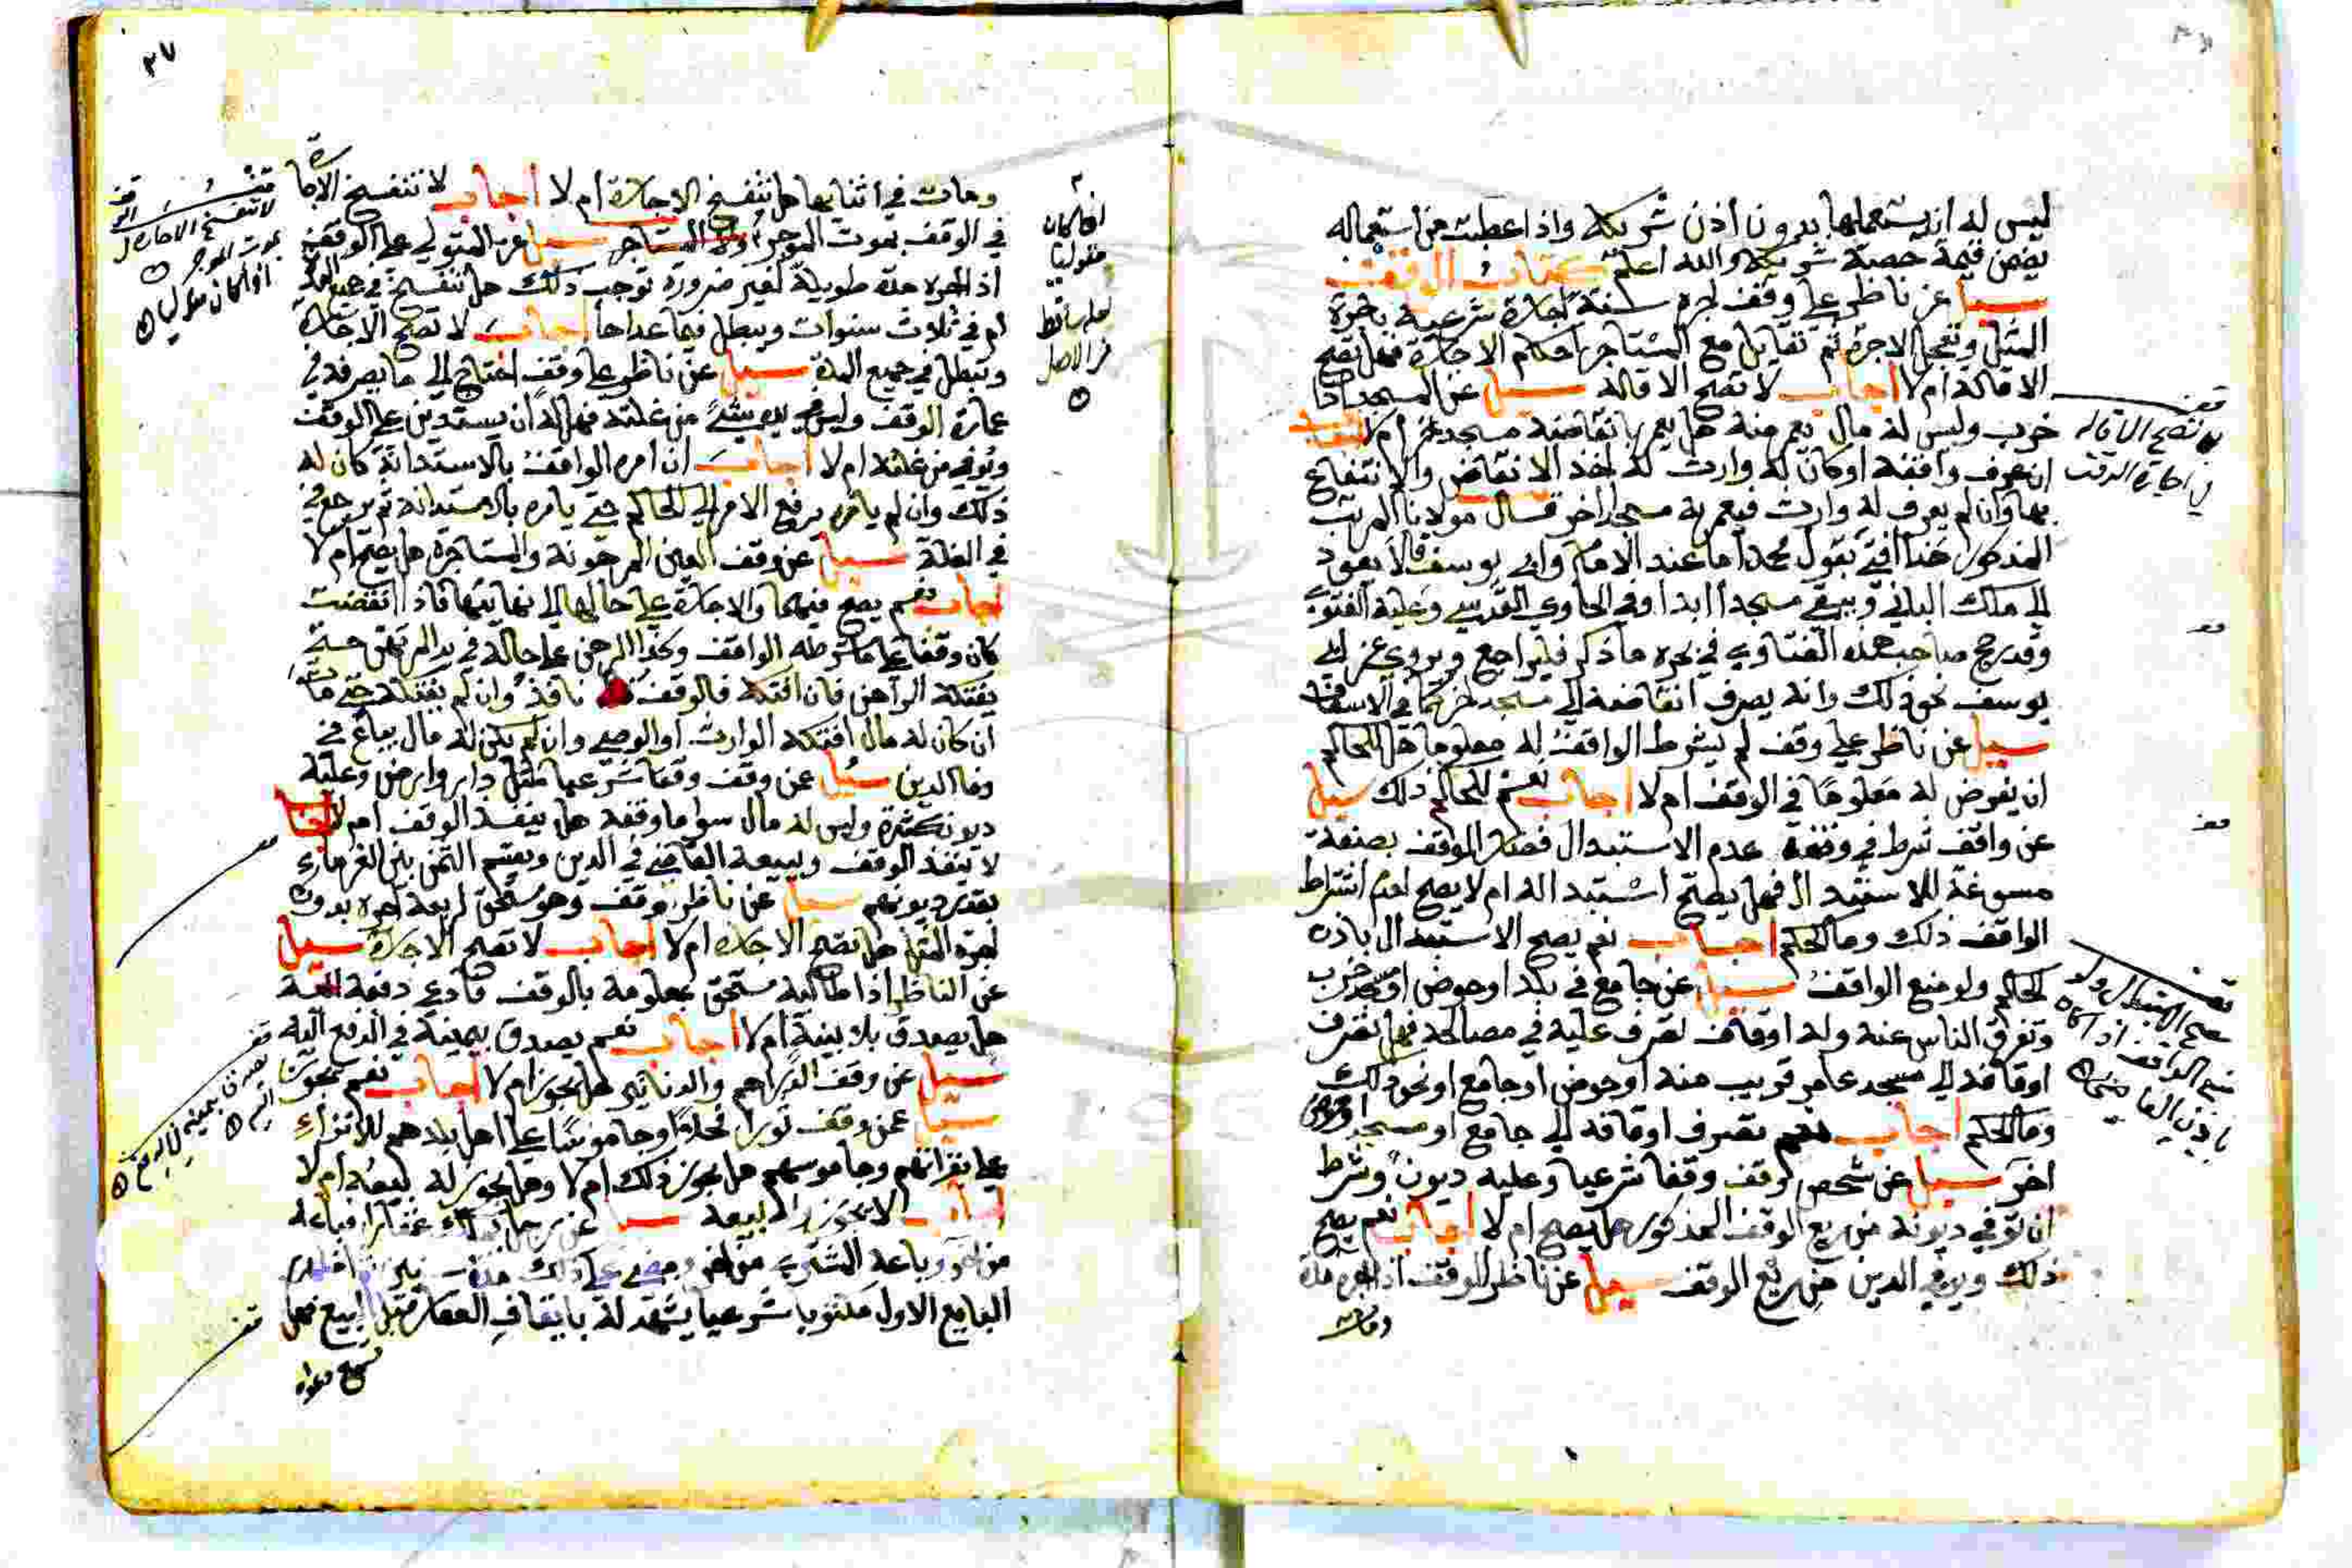 ليس له ان يستعملها بدون اذن شريكه واذا عطبت من استعماله
يضمن قيمة حصة شريكه والله اعلم كتاب الوقف
سيل عن ناظر على وقف اجره سنة اجارة شرعية باجرة
المثل وتعجل الاجرة ثم تقايل مع المستاجر احكام الاجارة فهل تصح
الاقالة ام لا اجاب لا تصح الاقالة سيل عن المسجد اذا
خرب وليس له مال يعمر منه هل يعمر بانقاضه مسجد ام لا
ان عرف واقفه اوكان له وارث له اخذ الانقاض والانتفاع
بها وان لم يعرف له وارث فيعمر به مسجد اخر قال مولانا المرتب
المذكور هذا افتى بقول محمد اما عند الامام وابي يوسف فلا يعود
الى ملك الباني ويبقى مسجدا ابدا وفي الحاوي القدسي وعليه الفتوى
وقد رجح صاحب هذه الفتاوي في بحره ما ذكر فليراجع ويروى عن ابي
يوسف نحو ذلك وانه يصرف انقاضه الى مسجد اخر كما في الاسعاف
سيل عن ناظر على وقف لم يشرط الواقف له معلوما هل للحاكم
ان يفوض له معلوما في الوقف ام لا اجاب نعم للحاكم ذلك سيل
عن واقف شرط في وقفه عدم الاستبدال فصار الموقف بصفة
مسوغة للاستبدال فهل يصح استبداله ام لا يصح لعدم اشتراط
الواقف ذلك وما الحكم اجاب نعم يصح الاستبدال باذن
الحاكم ولو منع الواقف سيل عن جامع في بلد اوحوض اومسجد خرب
وتفرق الناس عنه وله اوقاف تصرف عليه في مصالحه فهل تصرف
اوقافه الى مسجد عامر قريب منه اوحوض اوجامع اونحو ذلك
وما الحكم اجاب نعم تصرف اوقافه الى جامع او مسجد اوحوض
اخر سيل عن شخص وقف وقفا شرعيا وعليه ديون وشرط
ان توفى ديونه من ريع الوقف المذكور هل يصح ام لا اجاب نعم يصح
ذلك ويوفي الدين من ريع الوقف سيل عن ناظر الوقف اذا اجره مدة
ومات
قف
لا تصح الاقالة
في اجارة الوقف
قف
يصح الاستبدال ولو
منع الواقف اذا كان
باذن القاضي
٢٧
ومات في اثنايها هل تنفسخ الاجارة ام لا اجاب لا تنفسخ الاجارة
في الوقف بموت الموجر ولا المستاجر سيل عن المتولي على الوقف
اذا اجره مدة طويلة لغير ضرورة توجب ذلك هل تنفسخ في جميع المدة
ام في ثلاث سنوات ويبطل فيما عداها اجاب لا تصح الاجارة
وتبطل في جميع المدة سيل عن ناظر على وقف احتاج الى ما يصرفه في
عمارة الوقف وليس في يده شئ من غلته فهل له ان يستدين على الوقف
ويوفي من غلته ام لا اجاب ان امره الواقف بالاستدانة كان له
ذلك وان لم يامره يرفع الامر الى الحاكم حتى يامره بالاستدانة ثم يرجع في
في الغلة سيل عن وقف العين المرهونة والمستاجرة هل يصح ام لا
اجاب نعم يصح فيهما والاجارة على حالها الى نهايتها فاذا انقضت
كان وقفا على ما شرطه الواقف وكذا الرهن على حاله في يد المرتهن حتى
يفتكه الراهن فان افتكه فالوقف نافذ وان لم يفتكه حتى مات
ان كان له مال افتكه الوارث او الوصي وان لم يكن له مال يباع في
وفا الدين سيل عن وقف وقفا شرعيا مثل دار وارض وعليه
ديون كثيرة وليس له مال سوا ما وقفه هل ينفذ الوقف ام لا اجاب
لا ينفذ الوقف ويبيعه القاضي في الدين ويقسم الثمن بين الغرماء
بقدر ديونهم سيل عن ناظر وقف وهو مستحق لريعه اجره بدون
اجرة المثل هل تصح الاجارة ام لا اجاب لا تصح الاجارة سيل
عن الناظر اذا طالبه مستحق بمعلومه بالوقف فادعى دفعه اليه
هل يصدق بلا بينة ام لا اجاب نعم يصدق بيمينه في الدفع اليه
سيل عن وقف الدراهم والدنانير هل يجوز ام لا اجاب نعم يجوز
سيل عمن وقف ثورا وجاموسا على اهل بلدهم للانزاء
على بقراتهم وجاموسهم هل يجوز ذلك ام لا وهل يجوز له بيعه ام لا
اجاب لا يجوز له بيعه سيل عن رجل عقارا فباعه
من اخر وباعه المشتري من اخر ومضى على ذلك مدة
البايع الاول مكتوبا شرعيا يشهد له بايقاف العقار قبل البيع فهل
تسمع دعواه
قف
لا تنفسخ الاجارة
بموت الموجر
قف
يصدق بيمينه